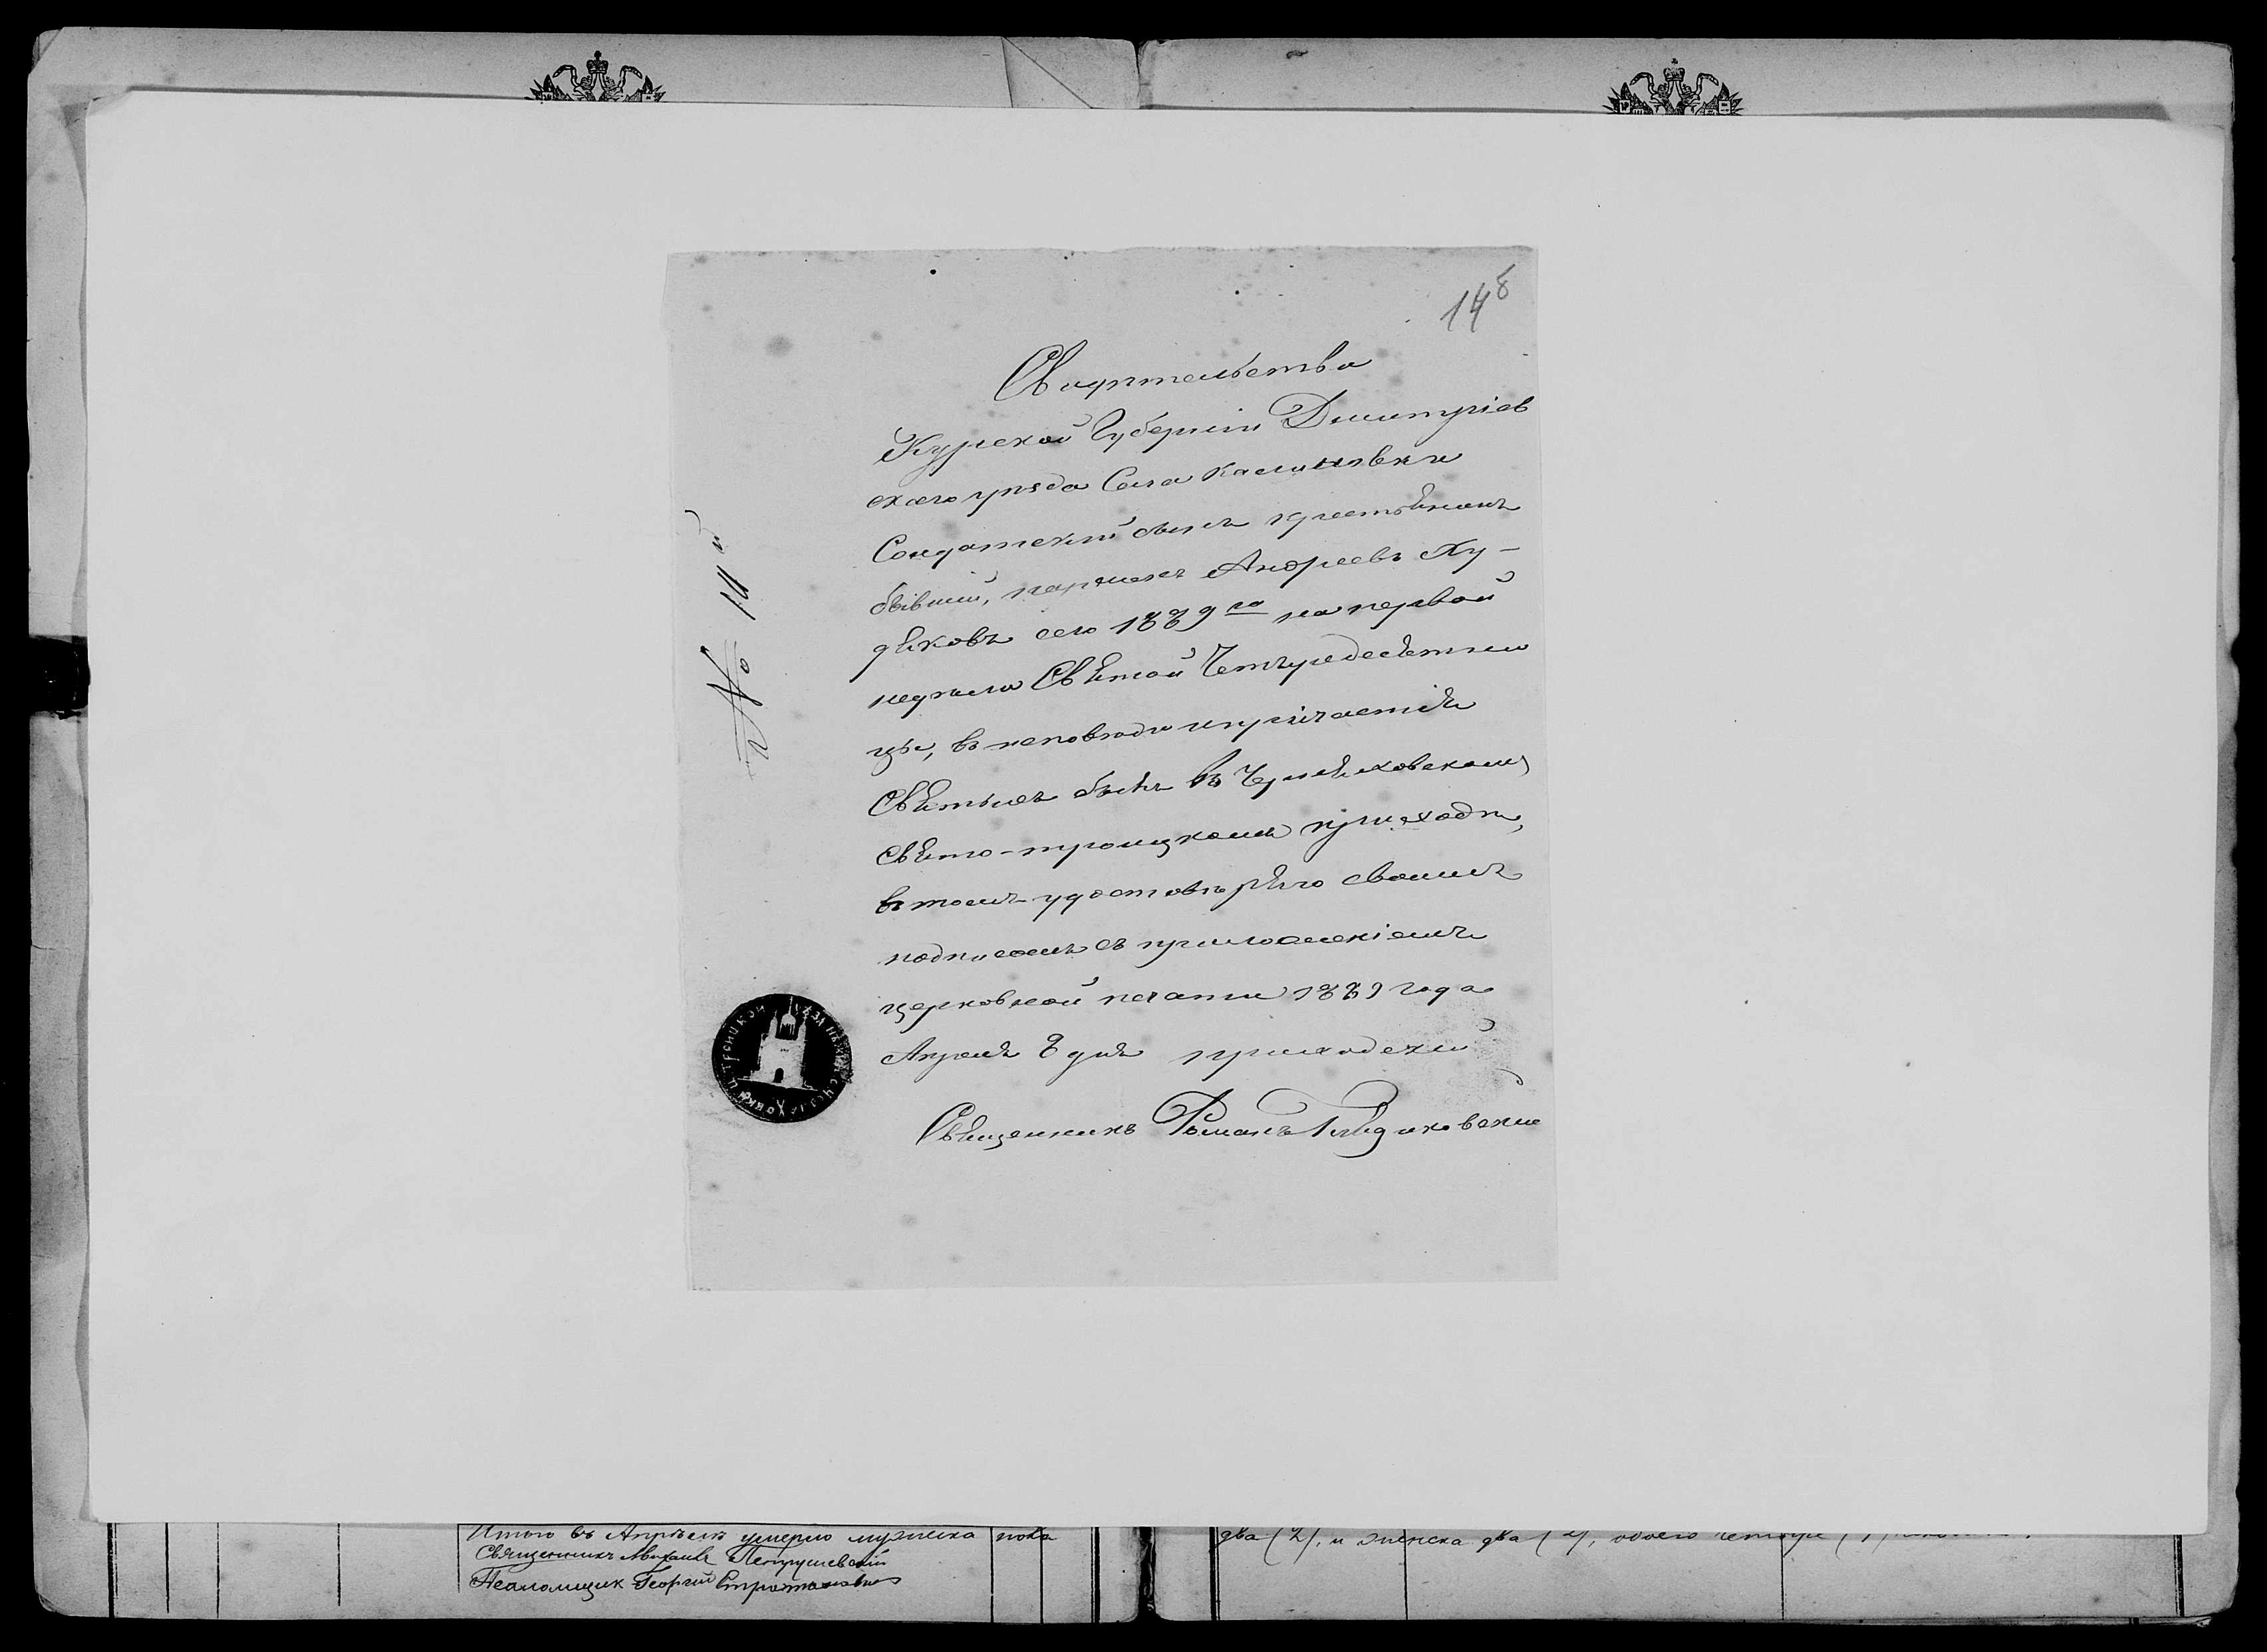 14 8
Свидѣтельство
Курской Губерніи Димитріев
скаго уѣзда Села Калиновки
Солдатскій сынъ крестьянинъ
бывшій, Андреевъ Ху-
дяковъ сего 1889го на первой
недѣли Святой Четыредесятни
цы, въ исповѣди и причастія
Святыхъ былъ въ Черняховскомъ
Свято-троицкомъ приходѣ,
въ томъ удостовѣряю своимъ
подписомъ съ приложеніемъ
церковной печати 1889 года
Апреля 8 дня приходскій
Священникъ Романъ
№ 14й
Итого въ Апрѣлѣ умерло мужеска пола
два (2), и женска два (2), обоего четыре (4)
Священникъ Михаилъ Петрушевскій
Псаломщик Георгій Стратановичъ